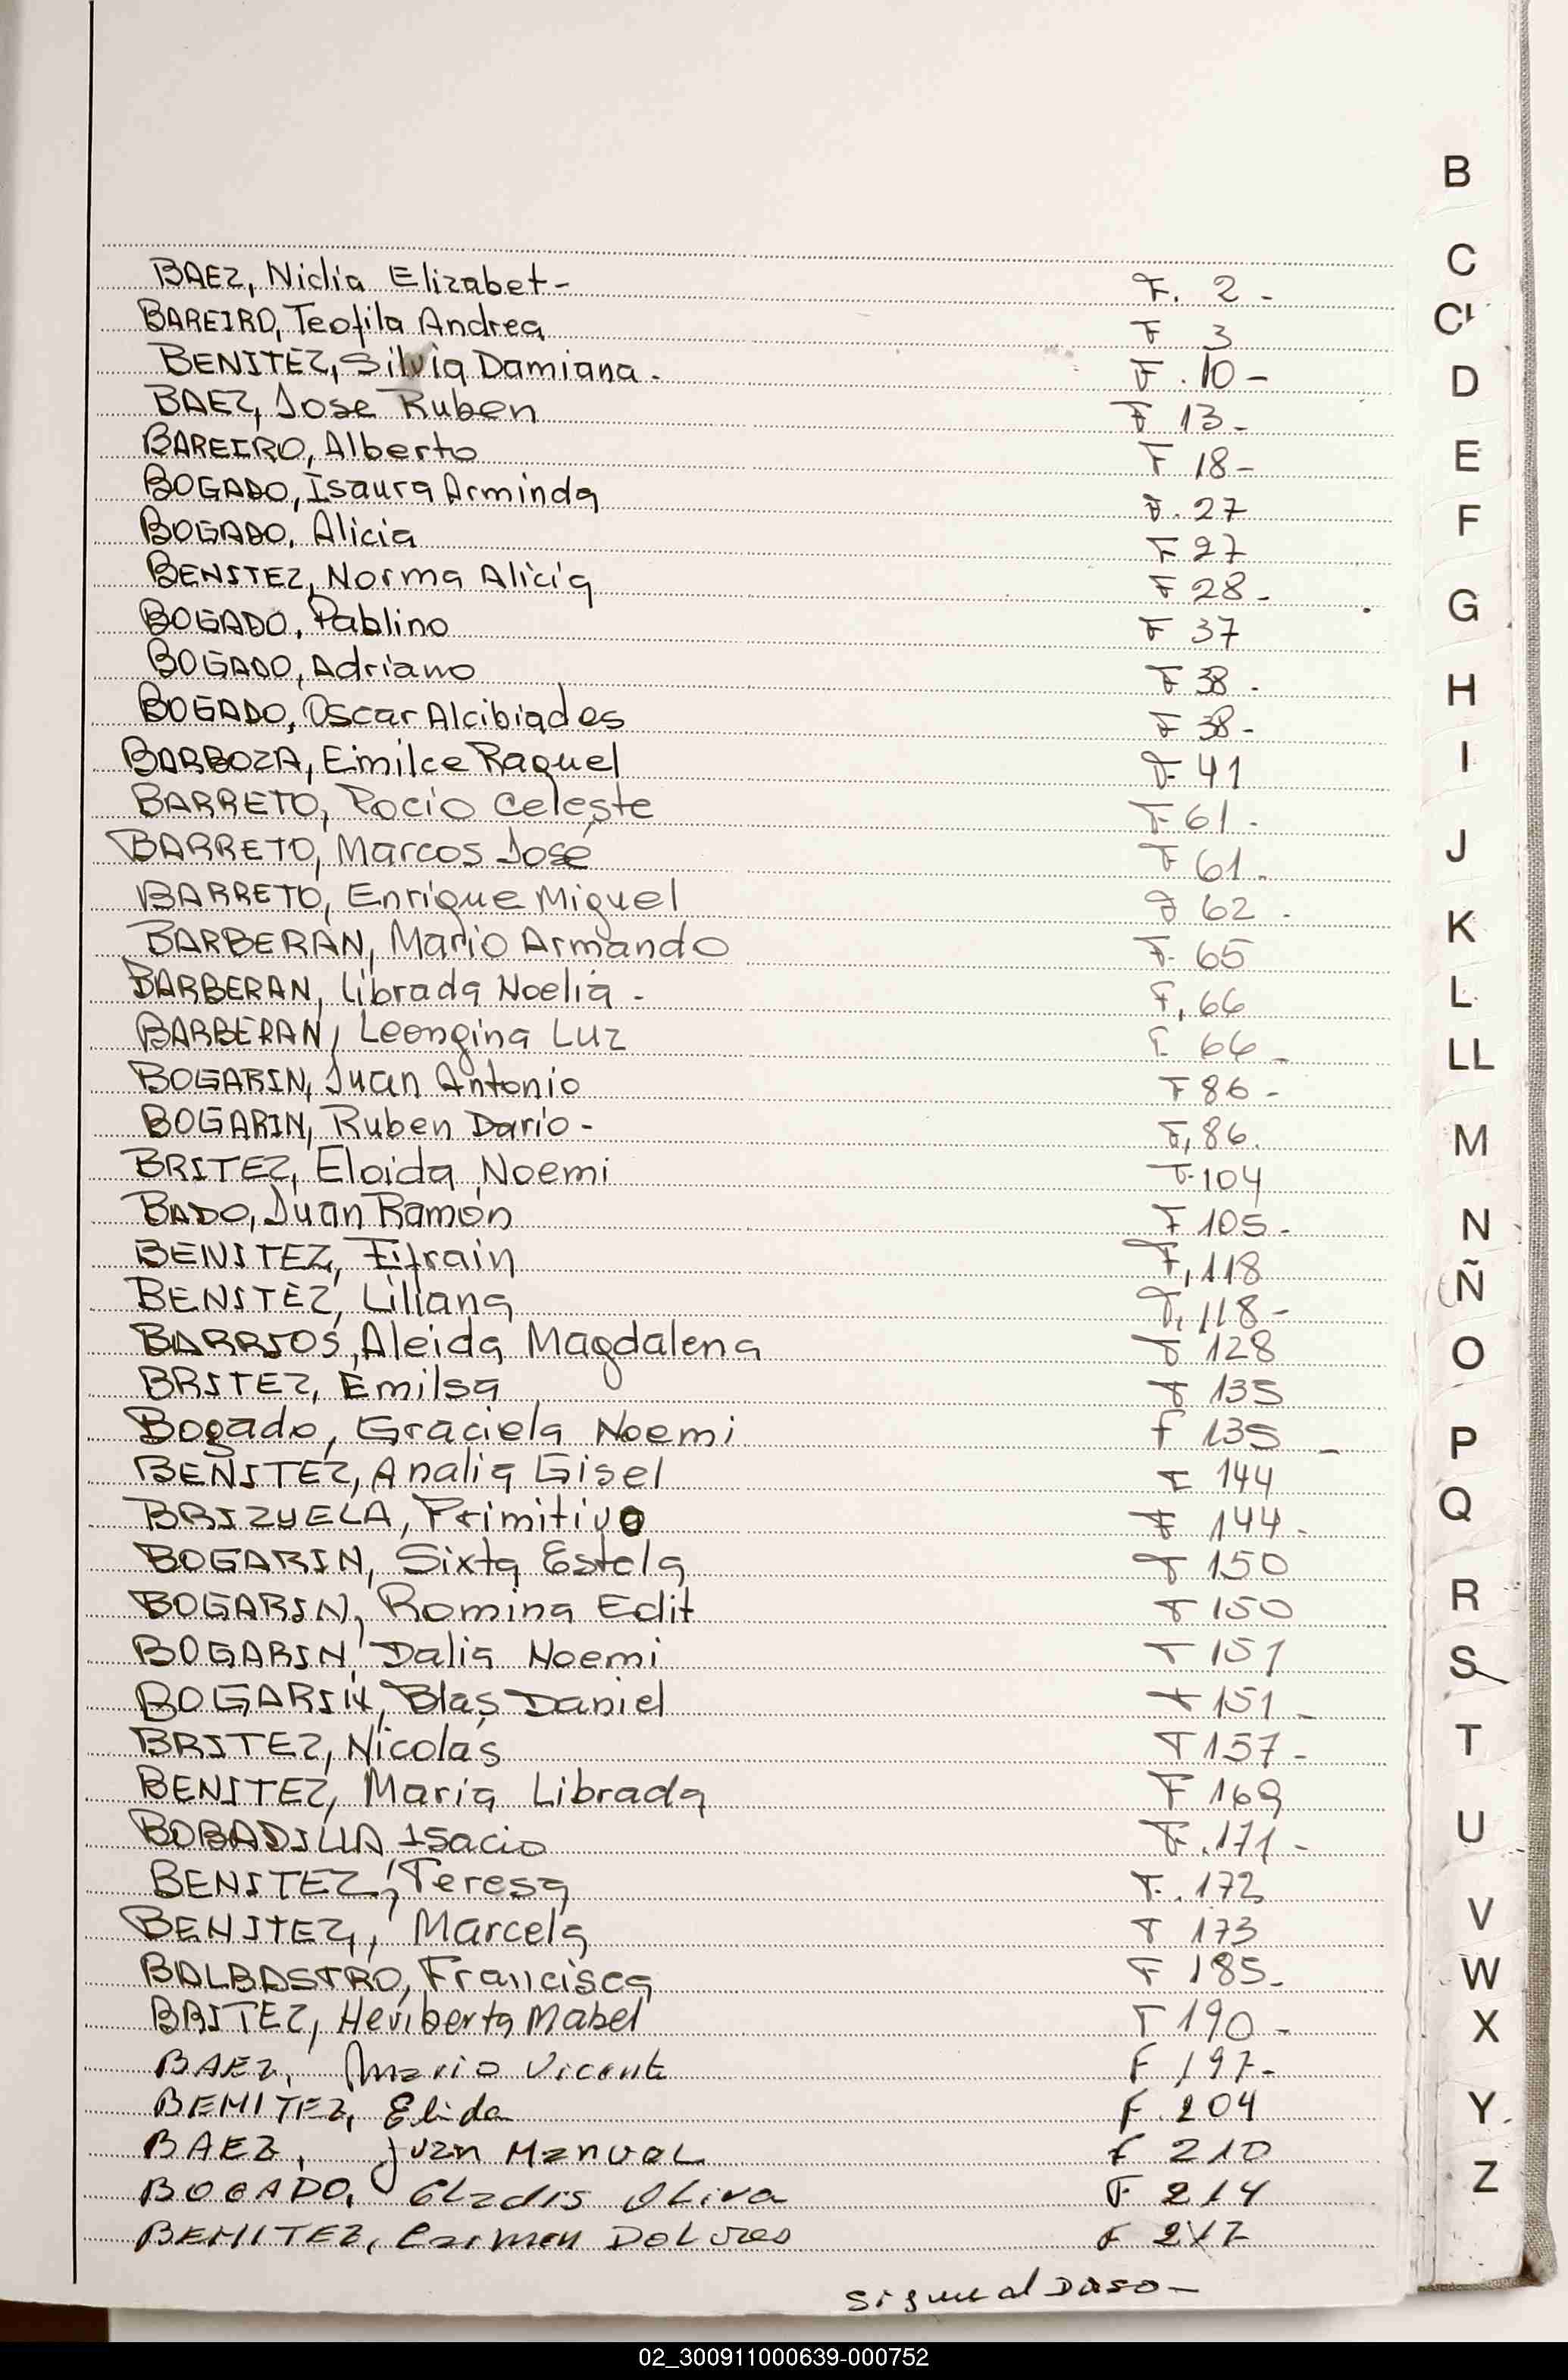 BAEZ, Nidia Elizabet- F. 2 -
BAREIRO, Teofila Andrea F 3
BENITEZ, Silvia Damiana. F. 10 -
BAEZ, Jose Ruben F 13 -
BAREIRO, Alberto F 18 -
BOGADO, Isaura Arminda F. 27
BOGADO, Alicia F 27
BENITEZ, Norma Alicia F 28 -
BOGADO, Pablino F 37
BOGADO, Adriano F 38 -
BOGADO, Oscar Alcibiades F 38 -
BARBOZA, Emilce Raquel F 41
BARRETO, Rocio Celeste F 61 -
BARRETO, Marcos José F 61 -
BARRETO, Enrique Miguel F 62 -
BARBERAN, Mario Armando F. 65
BARBERAN, Librada Noelia - F, 66
BARBERAN, Leongina Luz F 66 -
BOGARIN, Juan Antonio F 86 -
BOGARIN, Ruben Dario - F, 86.
BRITEZ, Eloida Noemi F 104
BADO, Juan Ramón F 105 -
BENITEZ, Efrain F, 118
BENITEZ, Liliana F, 118 -
BARRIOS, Aleida Magdalena F 128
BRITEZ, Emilsa F 135
Bogado, Graciela Noemi F 135 -
BENITEZ, Analia Gisel F 144
BRIZUELA, Primitivo F 144 -
BOGARIN, Sixta Estela F 150
BOGARIN, Romina Edit F 150
BOGARIN, Dalia Noemi F 151
BOGARIN, Blas Daniel F 151 -
BRITEZ, Nicolas F 157 -
BENITEZ, Maria Librada F 169
BOBADILLA, Isacio F. 171 -
BENITEZ, Teresa F. 172
BENITEZ, Marcela F 173
BALBASTRO, Francisca F 185 -
BRITEZ, Heriberta Mabel F 190 -
BAEZ, Mario Vicente F 197 -
BENITEZ, Elida F. 204
BAEZ, Juan Manuel F 210
BOGADO, Gladis Oliva F 214
BENITEZ, Carmen Dolores F 217
sigue al Dorso -
B
C
D
E
F
G
H
I
J
K
L
LL
M
N
Ñ
O
P
Q
R
S
T
U
V
W
X
Y
Z
02_300911000639-000752